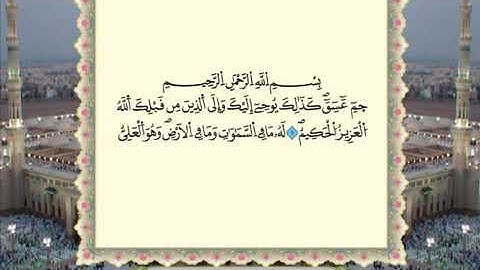 بِسْمِ اِ۬للَّهِ اِ۬لرَّحْمَٰنِ اِ۬لرَّحِيمِ
حمٓ عٓسٓقٓۖ كَذَٰلِكَ يُوحِےٓ إِلَيْكَ وَإِلَى اَ۬لذِينَ مِن قَبْلِكَ اَ۬للَّهُ
اُ۬لْعَزِيزُ اُ۬لْحَكِيمُۖ لَهُۥ مَا فِے اِ۬لسَّمَٰوَٰتِ وَمَا فِے اِ۬لْأَرْضِۖ وَهُوَ اَ۬لْعَلِيُّ